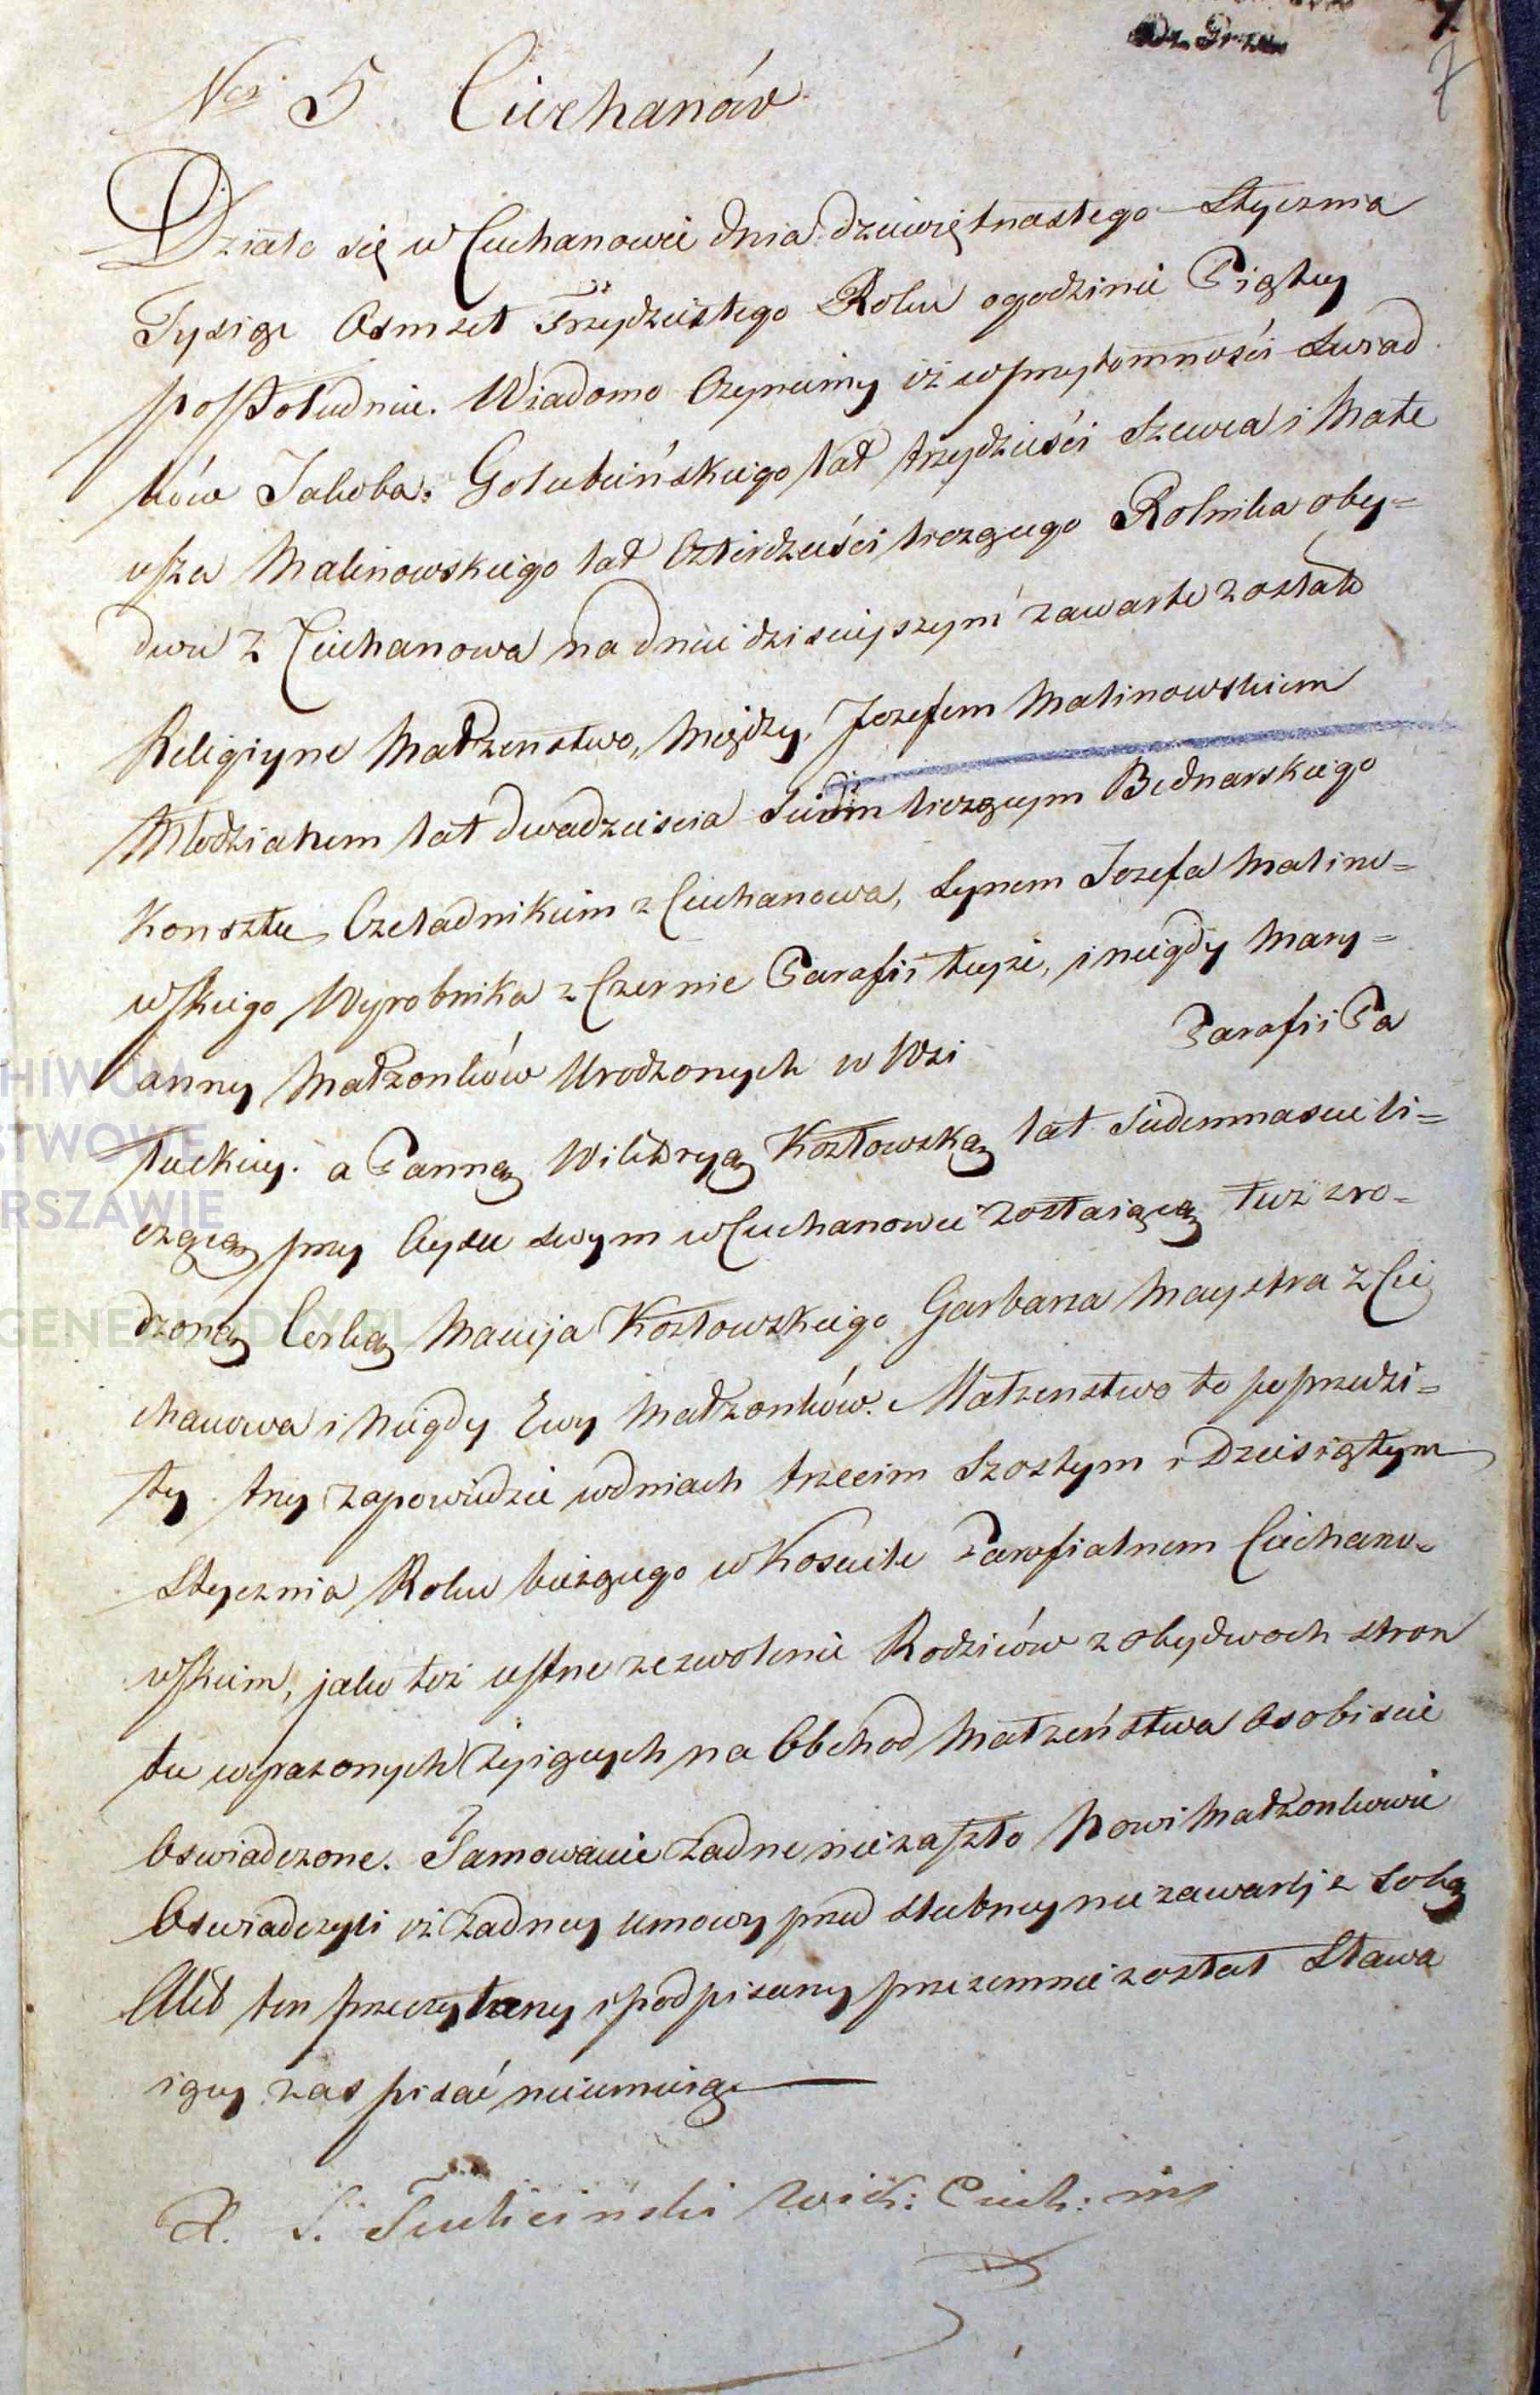 7
Nro 5 Ciechanów
Działo się w Ciechanowie dnia dziewiętnastego Stycznia
Tysiąc Osmset Trzydziestego Roku o godzinie Piątey
po Południu. Wiadomo Czyniemy iż w przytomności Swiad
ków Jakoba Gołubińskiego lat trzydzieści Szewca i Mate
usza Malinowskiego lat Czterdzieści liczącego Rolnika oby=
dwu z Ciechanowa na dniu dzisieyszym zawarte zostało
Religiyne Małżenstwo, Między, Jozefem Malinowskiem
Młodzianem lat dwadzieścia Siedm liczącym Bednarskiego
Konsztu Czeladnikiem z Ciechanowa, Synem Jozefa Malino=
wskiego Wyrobnika z Czernic Parafii teyże, i niegdy Mary=
anny Małżonków Urodzonych w Wsi Parafii Pa
łuckiey. a Panną Wiktoryą Kozłowską lat Siedemnascie li=
czącą przy Oycu swym w Ciechanowie zostaiącą tuż zro=
dzoną Corką Macieja Kozłowskiego Garbarza Maystra z Cie
chanowa i Niegdy Ewy Małżonków. Małżenstwo to poprzedzi=
ły trzy zapowiedzie w dniach trzecim Szostym i Dziesiątym
Stycznia Roku bieżącego w Kosciele Parafialnem Ciechano=
wskiem, jako też ustne zezwolenie Rodziców z obydwoch stron
tu wyrazonych Żyiących na Obchod Małżeństwa Osobiscie
Oswiadczone. Tamowanie Żadne nie zaszło Nowi Małżonkowie
Oswiadczyli iż Żadney umowy przed slubney nie zawarli z Sobą
Akt ten przeczytany i podpisany przezemnie został Stawa
iący zas pisać nieumieią
X. S. Wik: Ciech: mp